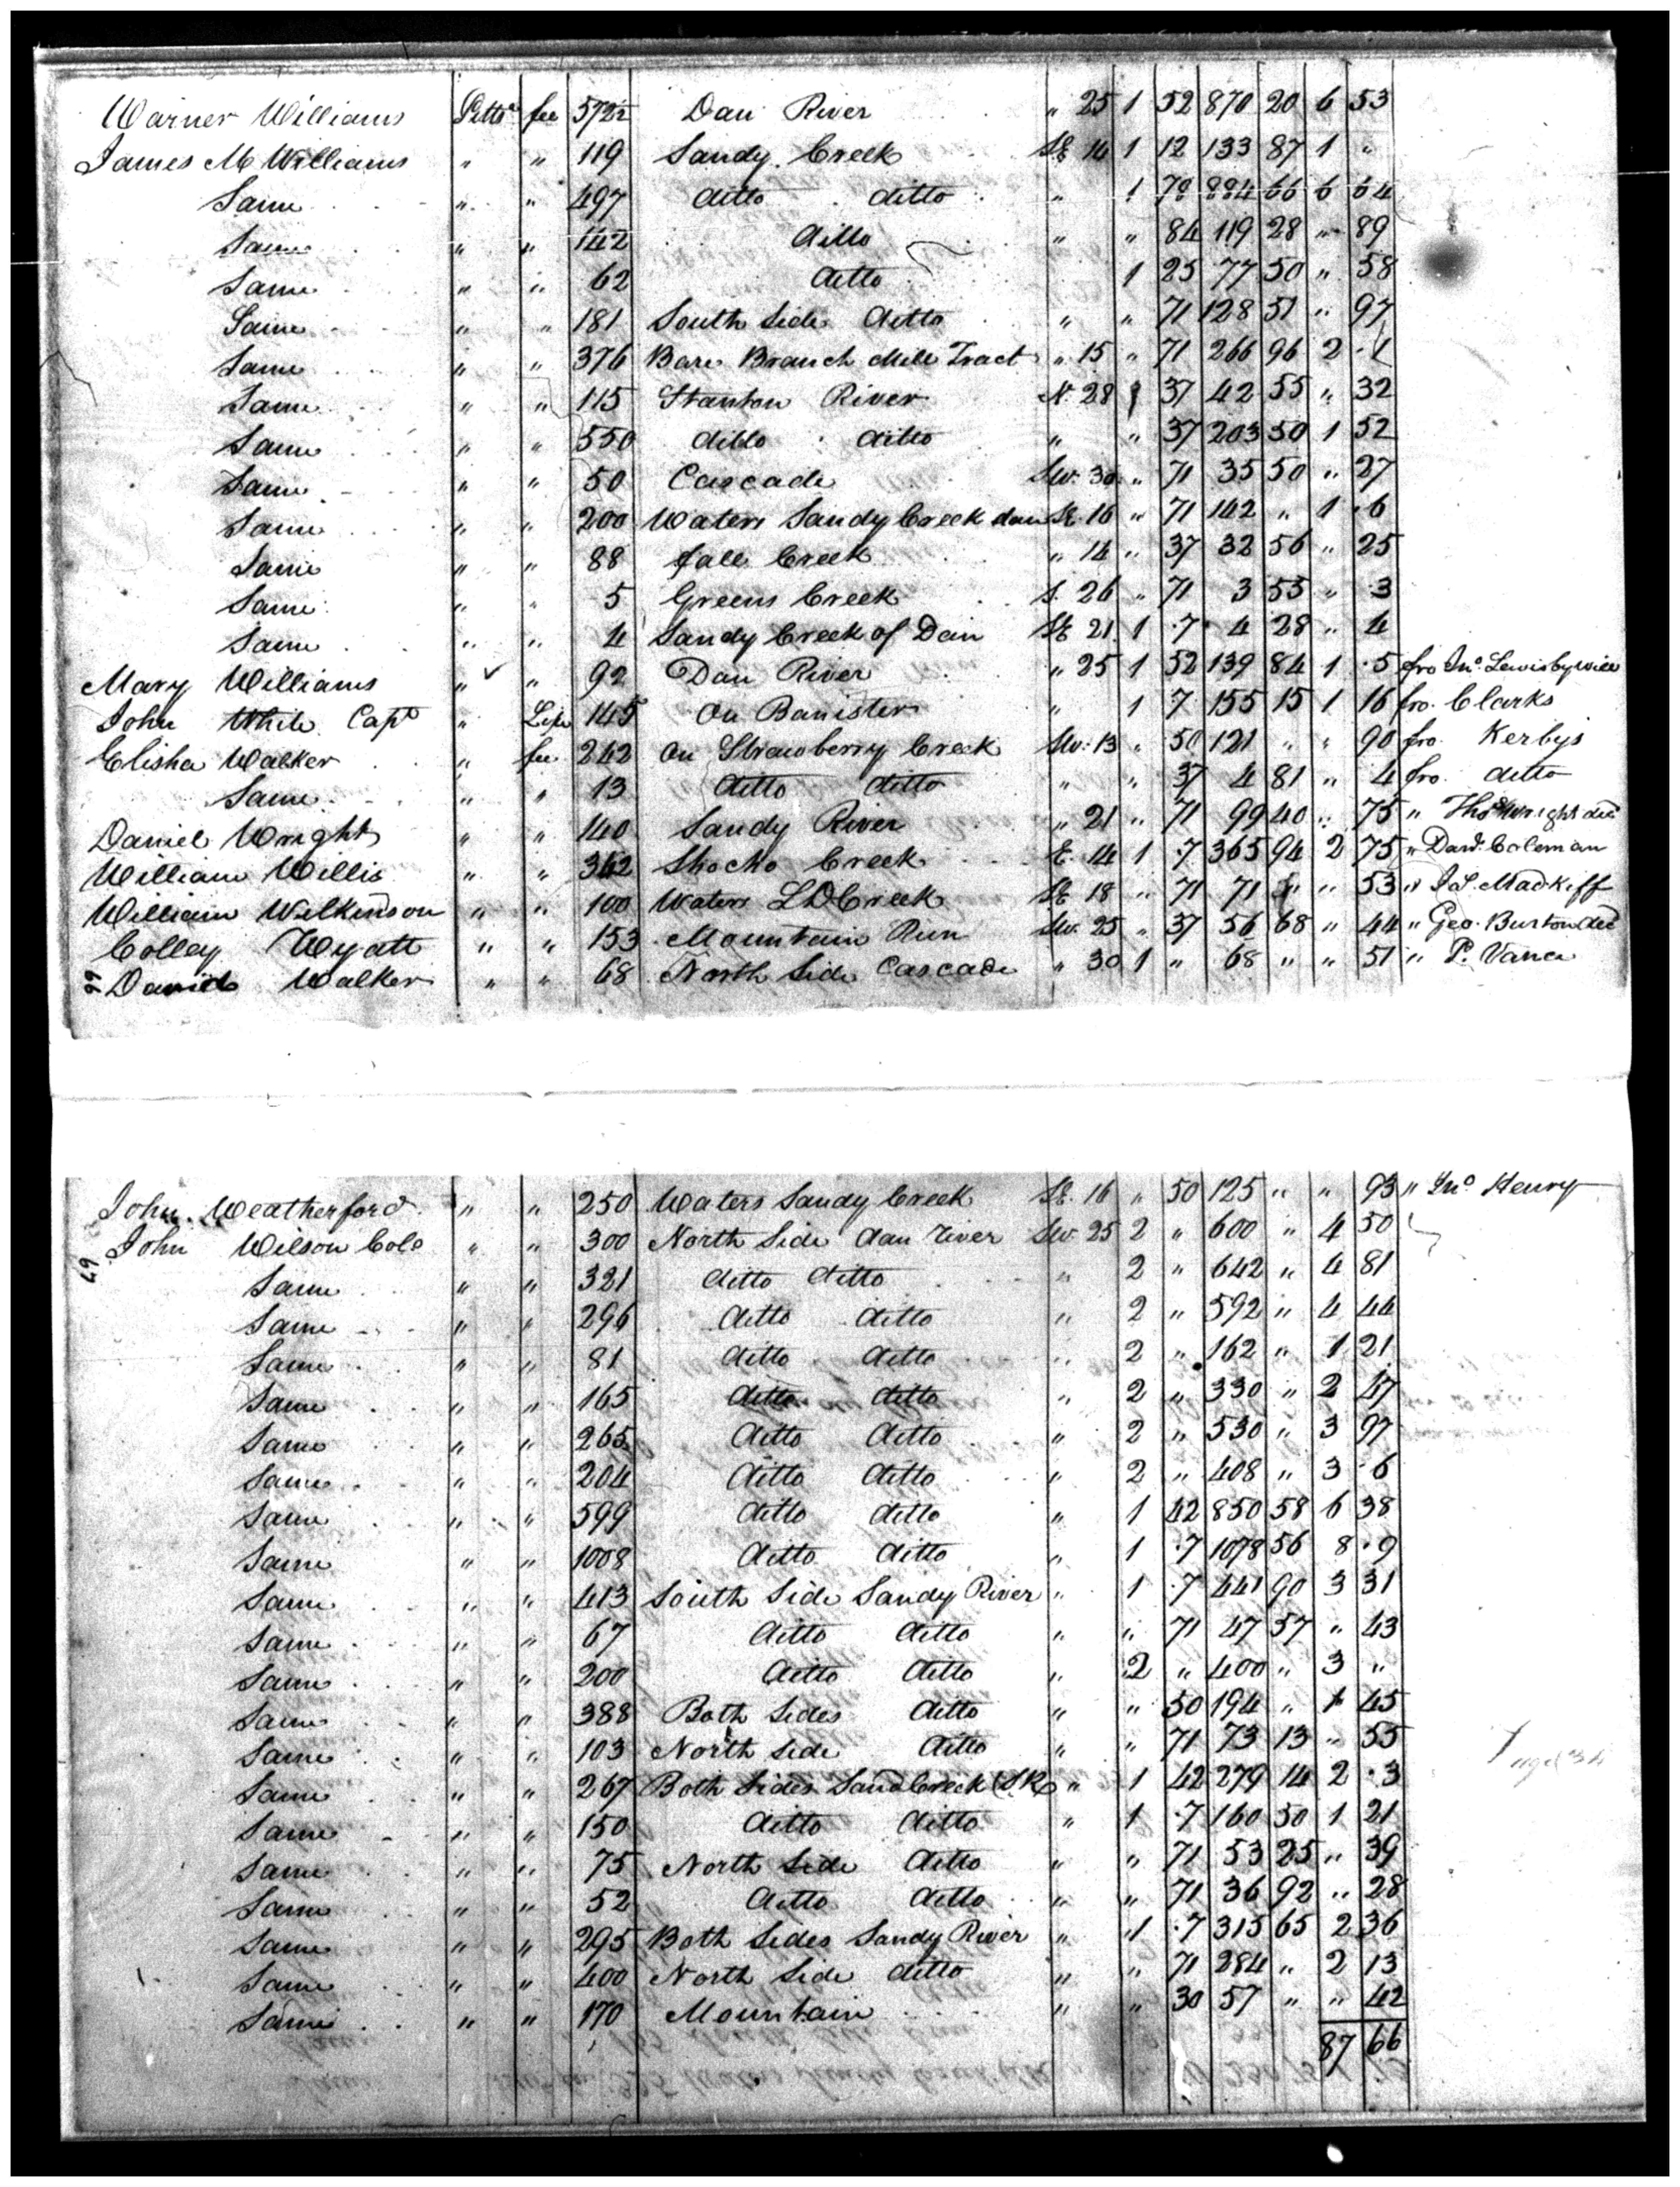 Warner Williams Pitta fee 572½ Dan River " 25 1 52 870 20 6 53
James M Williams " " 119 Sandy Creek SE 14 1 12 133 87 1 "
Same " " 497 ditto ditto " 1 78 884 66 6 64
Same " " 142 ditto " " 84 119 28 " 89
Same " " 62 ditto 1 25 77 50 " 58
Same " " 181 South Side ditto " " 71 128 51 " 97
Same " " 376 Bare Branch Mill Tract " 15 " 71 266 96 2 .1
Same " " 115 Stanton River N. 28 " 37 42 55 " 32
Same " " 550 ditto ditto " " 37 203 50 1 52
Same " " 50 Cascade SW. 30 " 71 35 50 " 27
Same " " 200 Waters Sandy Creek dan SE. 16 " 71 142 " 1 .6
Same " " 88 fall Creek " 14 " 37 32 56 " 25
Same " " 5 Greens Creek S. 26 " 71 3 55 " .3
Same " " 4 Sandy Creek of Dan SE 21 1 .7 4 28 " 4
Mary Williams " " 92 Dan River " 25 1 52 139 84 1 .5 fro Jno. Lewis by will
John White Capt " Life 145 On Banister " 1 7 155 15 1 16 fro. Clarks
Elisha Walker " fee 242 On Strawberry Creek SW. 13 " 50 121 " " 90 fro. Kerbys
Same " " 13 ditto ditto " " 37 4 81 " 4 fro. ditto
Daniel Wright " " 140 Sandy River " 21 " 71 99 40 " 75 " Thos Wright decd
William Willis " " 342 Shocko Creek E. 14 1 .7 365 94 2 75 " Davd. Coleman
William Wilkinson " " 100 Waters L D Creek SE 18 " 71 71 " " 53 " Js. Madkiff
Colley Wyatt " " 153 Mountain Run SW. 25 " 37 56 68 " 44 " Geo. Burton decd
66 David Walker " " 68 North Side Cascade " 30 1 " 68 " " 51 " P. Vance
John Weatherford " " 250 Waters Sandy Creek SE. 16 " 50 125 " " 93 " Jno Henry
67 John Wilson Colo " " 300 North Side dan river SW. 25 2 " 600 " 4 50
Same " " 321 ditto ditto " 2 " 642 " 4 81
Same " " 296 ditto ditto " 2 " 592 " 4 44
Same " " 81 ditto ditto " 2 " 162 " 1 21
Same " " 165 ditto ditto " 2 " 330 " 2 47
Same " " 265 ditto ditto " 2 " 530 " 3 97
Same " " 204 ditto ditto " 2 " 408 " 3 .6
Same " " 599 ditto ditto " 1 42 850 58 6 38
Same " " 1008 ditto ditto " 1 .7 1078 56 8 .9
Same " " 413 South Side Sandy River " 1 .7 441 90 3 31
Same " " 67 ditto ditto " " 71 47 57 " 43
Same " " 200 ditto ditto " 2 " 400 " 3 "
Same " " 388 Both Sides ditto " " 50 194 " 1 45
Same " " 103 North Side ditto " " 71 73 13 " 55
Same " " 267 Both Sides Sand Creek (S.R) " 1 42 279 14 2 .3
Same " " 150 ditto ditto " 1 .7 160 50 1 21
Same " " 75 North Side ditto " " 71 53 25 " 39
Same " " 52 ditto ditto " " 71 36 92 " 28
Same " " 295 Both Sides Sandy River " 1 .7 315 65 2 36
Same " " 400 North Side ditto " " 71 284 " 2 13
Same " " 170 Mountain " " 30 57 " " 42
87 66